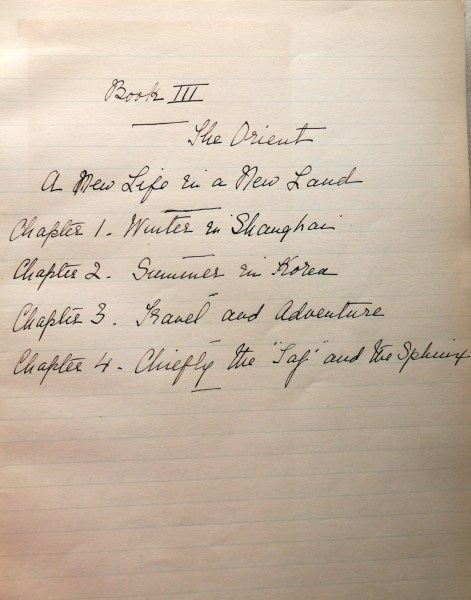 Book III
The Orient
A New Life in a New Land
Chapter 1. Winter in Shanghai
Chapter 2. Summer in Korea
Chapter 3. Travel and Adventure
Chapter 4. Chiefly the "Taj" and the Sphinx